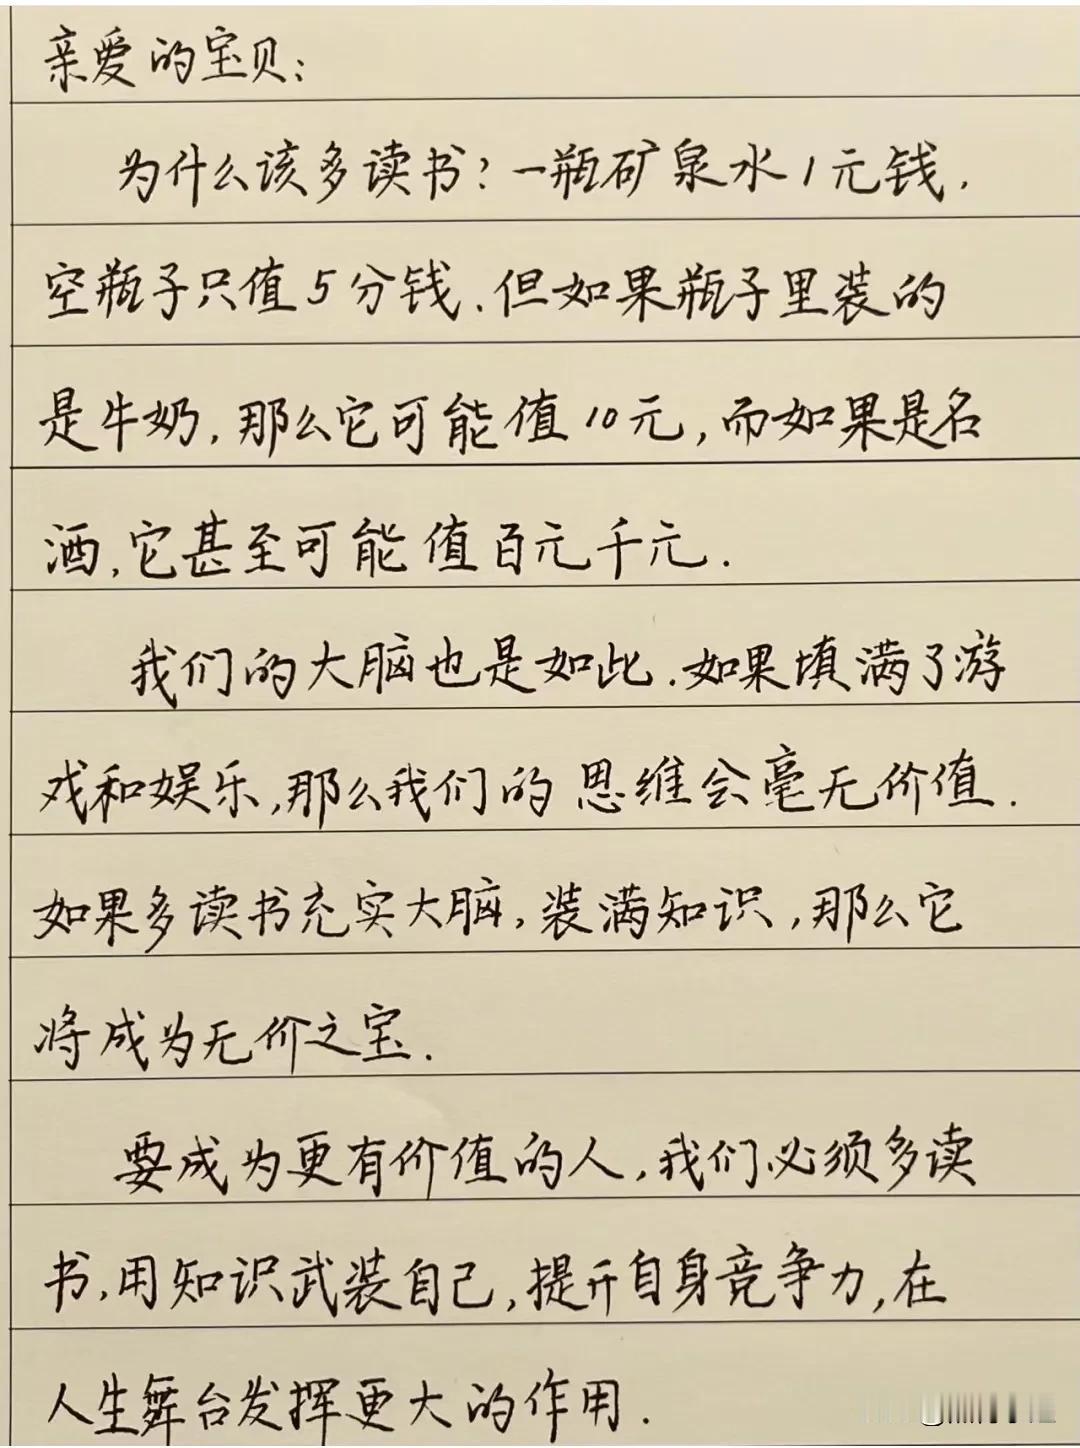 亲爱的宝贝:
为什么该多读书?一瓶矿泉水1元钱.
空瓶子只值5分钱.但如果瓶子里装的
是牛奶,那么它可能值10元,而如果是名
酒,它甚至可能值百元千元.
我们的大脑也是如此.如果填满了游
戏和娱乐,那么我们的思维会毫无价值.
如果多读书充实大脑,装满知识,那么它
将成为无价之宝.
要成为更有价值的人,我们必须多读
书,用知识武装自己,提升自身竞争力,在
人生舞台发挥更大的作用.